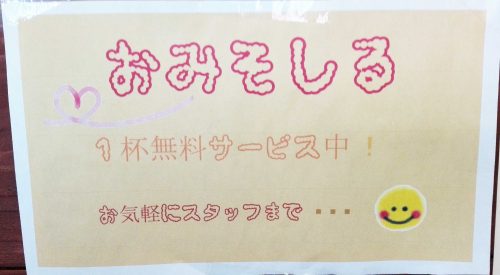 おみそしる
1杯無料サービス中！
お気軽にスタッフまで・・・